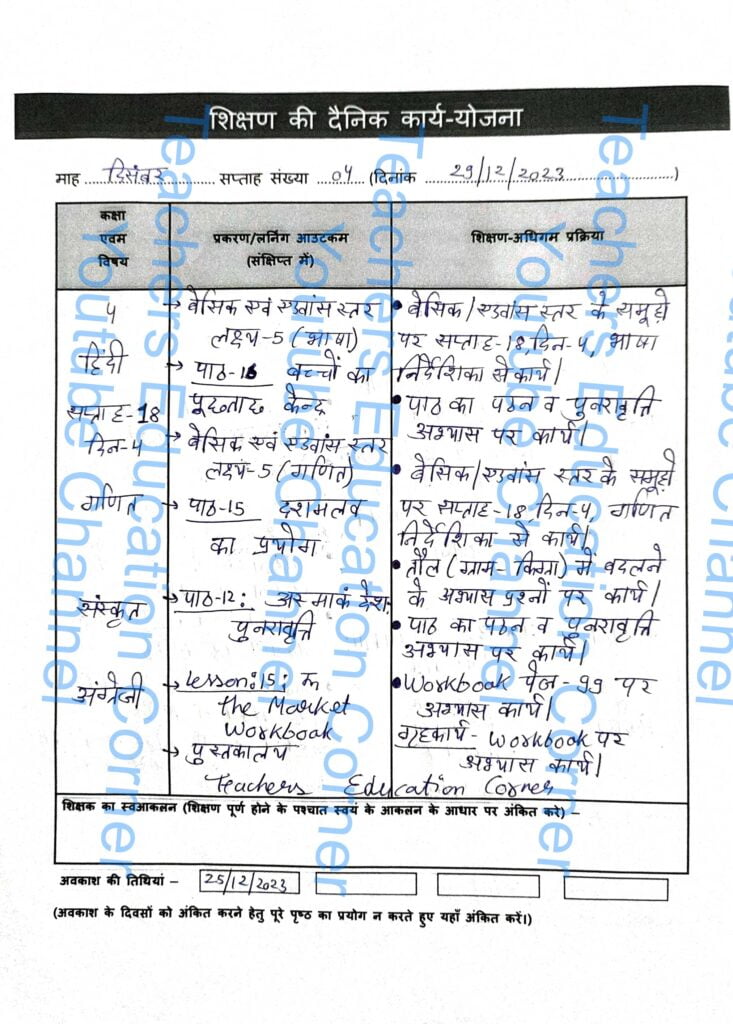 शिक्षण की दैनिक कार्य-योजना
माह दिसंबर सप्ताह संख्या 04 (दिनांक 29/12/2023)
कक्षा एवम विषय
प्रकरण/लर्निंग आउटकम (संक्षिप्त में)
शिक्षण-अधिगम प्रक्रिया
5
हिंदी
सप्ताह-18
दिन-4
गणित
संस्कृत
अंग्रेजी
→ बेसिक एवं एडवांस स्तर
लक्ष्य-5 (भाषा)
→ पाठ-16 बच्चों का
पूछताछ केन्द्र
→ बेसिक एवं एडवांस स्तर
लक्ष्य-5 (गणित)
→ पाठ-15 दशमलव
का प्रयोग
→ पाठ-12: अस्माकं देशः
पुनरावृत्ति
→ Lesson:15: In
the Market
Workbook
→ पुस्तकालय
• बेसिक/एडवांस स्तर के समूहों
पर सप्ताह-18, दिन-4, भाषा
निर्देशिका से कार्य।
• पाठ का पठन व पुनरावृत्ति
अभ्यास पर कार्य।
• बेसिक/एडवांस स्तर के समूहों
पर सप्ताह-18, दिन-4, गणित
निर्देशिका से कार्य।
• तौल (ग्राम-किग्रा) में बदलने
के अभ्यास प्रश्नों पर कार्य।
• पाठ का पठन व पुनरावृत्ति
अभ्यास पर कार्य।
• Workbook पेज-99 पर
अभ्यास कार्य।
गृहकार्य- Workbook पर
अभ्यास कार्य।
Teachers Education Corner
शिक्षक का स्वआकलन (शिक्षण पूर्ण होने के पश्चात स्वयं के आकलन के आधार पर अंकित करे) –
अवकाश की तिथियां – 25/12/2023
(अवकाश के दिवसों को अंकित करने हेतु पूरे पृष्ठ का प्रयोग न करते हुए यहाँ अंकित करें।)
Teachers Education Corner
Youtube Channel
Teachers Education Corner
Youtube Channel
Teachers Education Corner
Youtube Channel